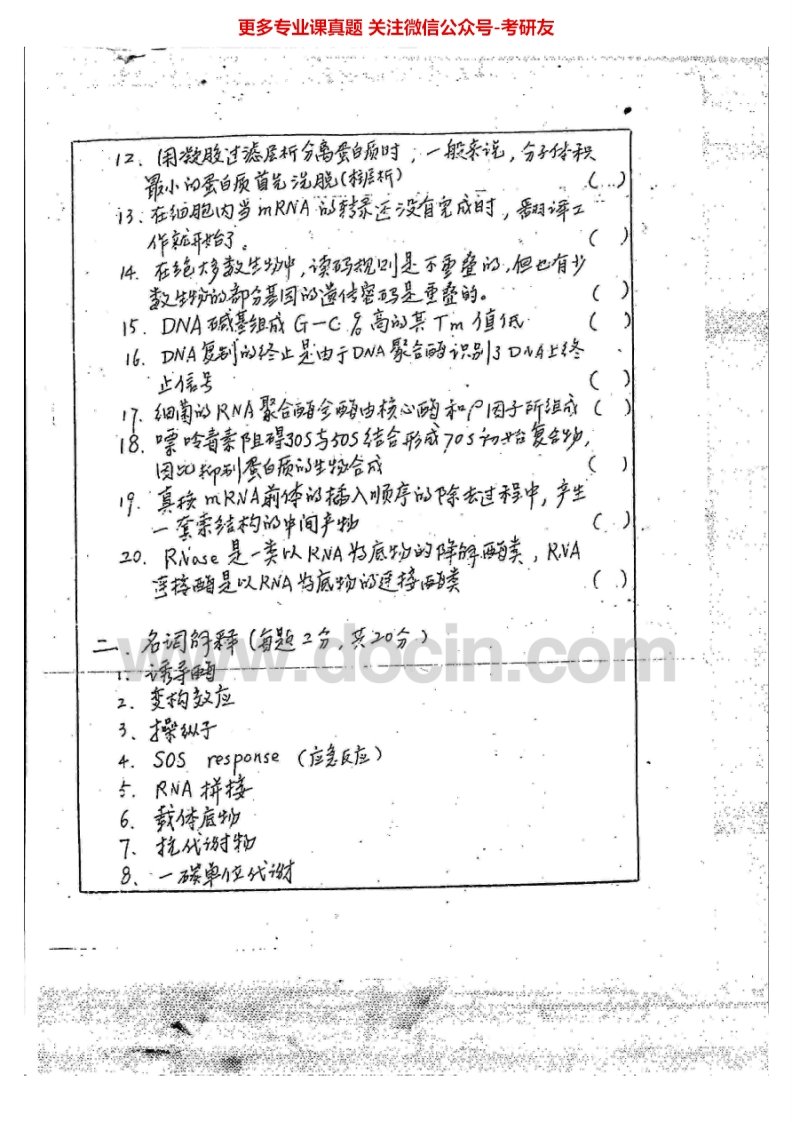 更多专业课真题 关注微信公众号-考研友
12、用凝胶过滤层析分离蛋白质时，一般来说，分子体积
最小的蛋白质首先洗脱(柱层析) ( )
13、在细胞内当mRNA的转录还没有完成时，翻译工
作就开始了。 ( )
14、在绝大多数生物中，读码规则是不重叠的，但也有少
数生物的部分基因的遗传密码是重叠的。 ( )
15、DNA碱基组成G-C%高的其Tm值低 ( )
16、DNA复制的终止是由于DNA聚合酶识别了DNA上终
止信号 ( )
17、细菌的RNA聚合酶全酶由核心酶和ρ因子所组成 ( )
18、嘌呤毒素阻碍30S与50S结合形成70S初始复合物，
因此抑制蛋白质的生物合成 ( )
19、真核mRNA前体的插入顺序的除去过程中，产生
一套索结构的中间产物 ( )
20、RNase是一类以RNA为底物的降解酶类，RNA
连接酶是以RNA为底物的连接酶类 ( )
二、名词解释(每题2分，共20分)
www.docin.com
1、诱导酶
2、变构效应
3、操纵子
4、SOS response（应急反应）
5、RNA拼接
6、载体底物
7、抗代谢物
8、一碳单位代谢